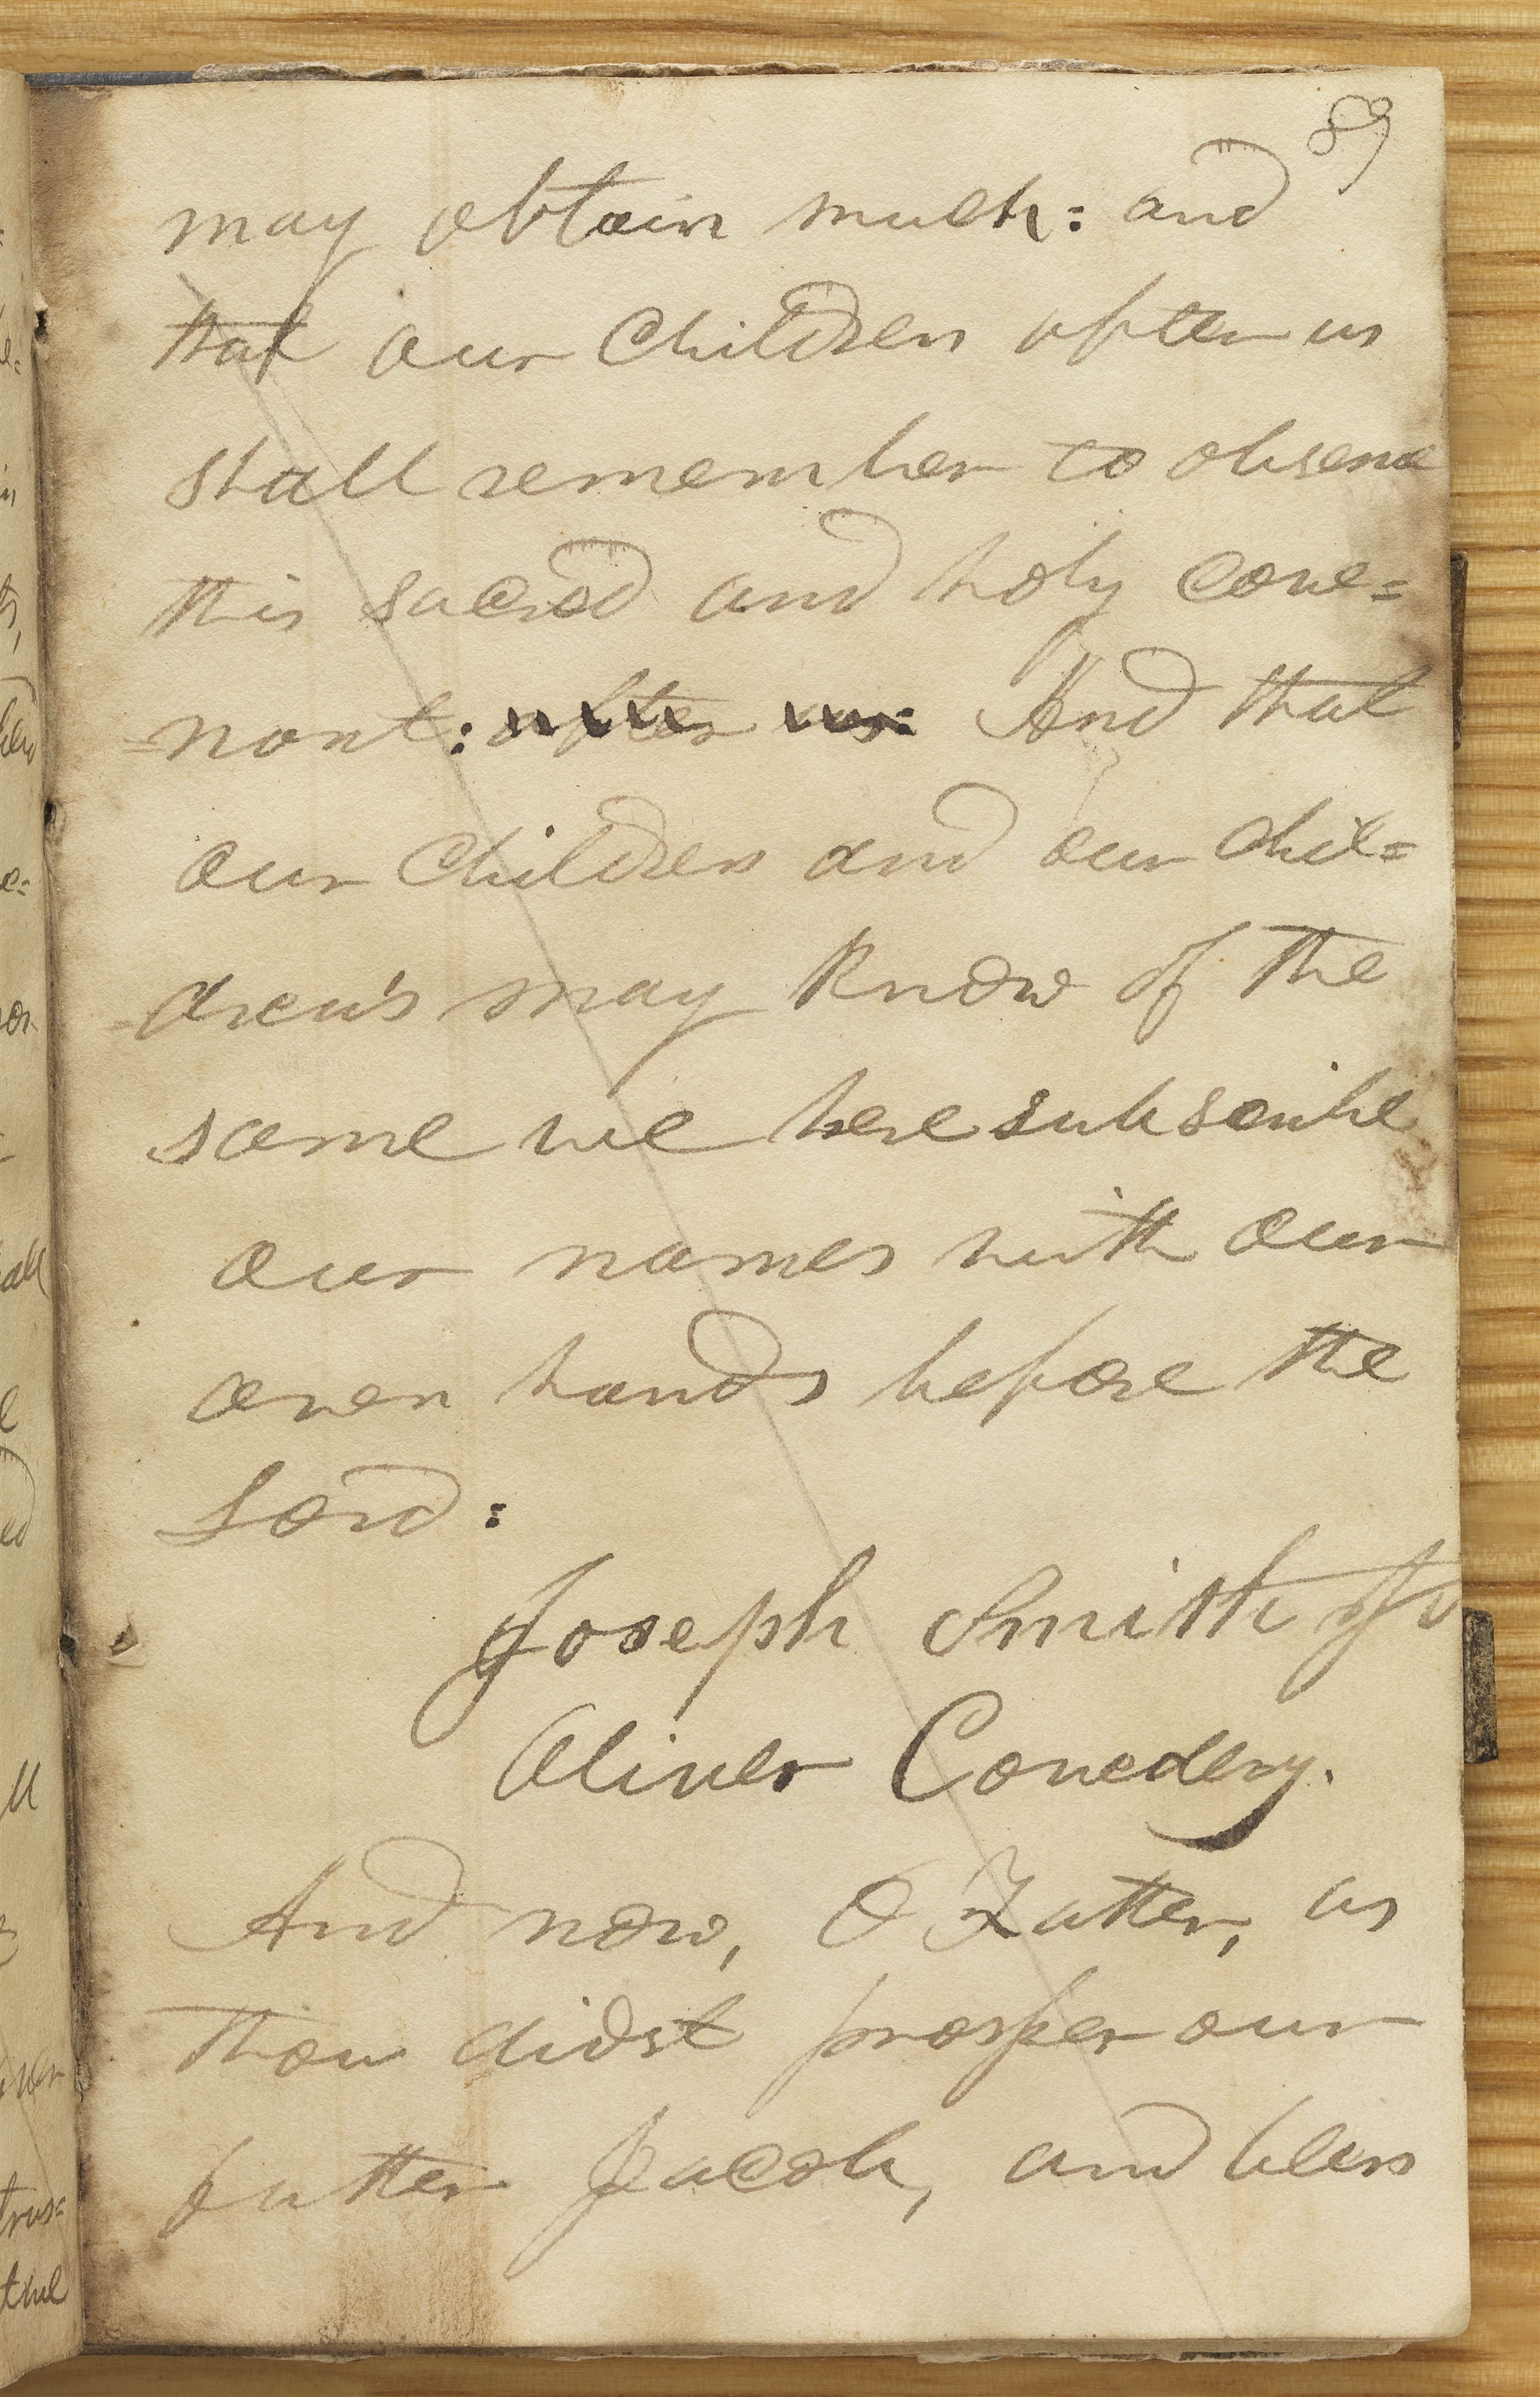 89
may obtain much: and
that our Children after us
shall remember to observe
this sacred and holy cove=
=nant: after us: And that
our Children and our chil=
=dren's may know of the
same we here subscribe
our names with our
own hands before the
Lord:
Joseph Smith Jr
Oliver Cowdery.
And now, O Father, as
thou didst prosper our
father Jacob, and bless